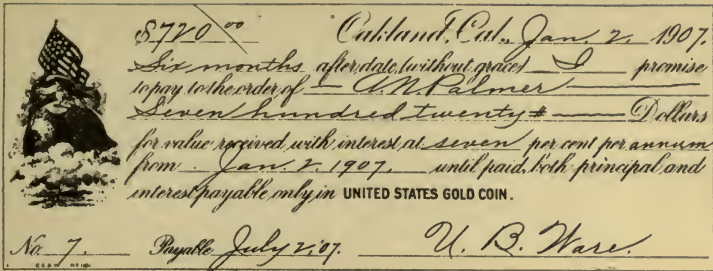 $720 00 Oakland, Cal., Jan. 2, 1907.
Six months after date (without grace) I promise
to pay to the order of A. N. Palmer
Seven hundred twenty # Dollars
for value received with interest at seven per cent per annum
from Jan. 2, 1907. until paid, both principal and
interest payable only in UNITED STATES GOLD COIN.
No. 7. Payable July 2, '07. U. B. Ware.